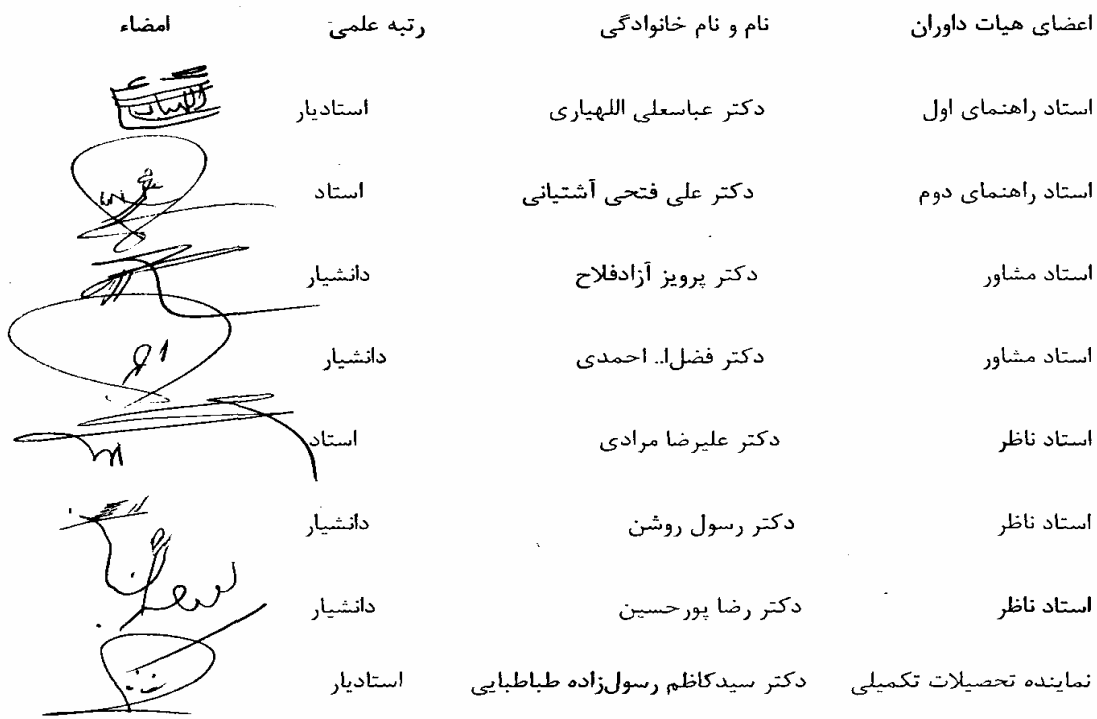 اعضای هیات داوران نام و نام خانوادگی رتبه علمی امضاء
استاد راهنمای اول دکتر عباسعلی اللهیاری استادیار
استاد راهنمای دوم دکتر علی فتحی آشتیانی استاد
استاد مشاور دکتر پرویز آزادفلاح دانشیار
استاد مشاور دکتر فضل‌ا.. احمدی دانشیار
استاد ناظر دکتر علیرضا مرادی استاد
استاد ناظر دکتر رسول روشن دانشیار
استاد ناظر دکتر رضا پورحسین دانشیار
نماینده تحصیلات تکمیلی دکتر سیدکاظم رسول‌زاده طباطبایی استادیار